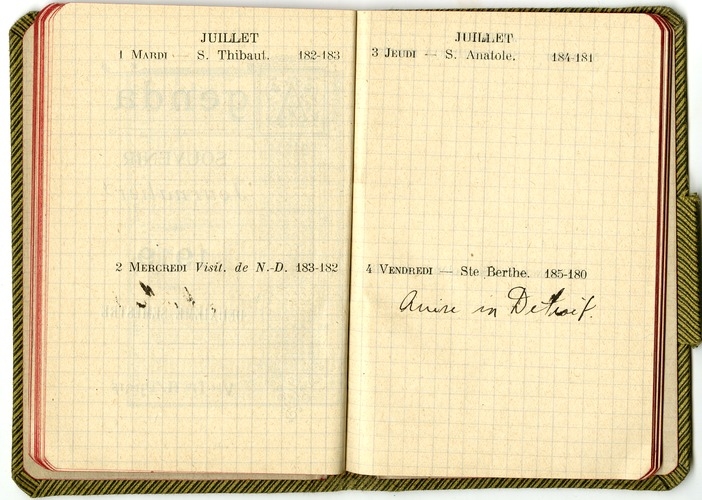 JUILLET
1 MARDI — S. Thibaut. 182-183
2 MERCREDI Visit. de N.-D. 183-182
JUILLET
3 JEUDI — S. Anatole. 184-181
4 VENDREDI — Ste Berthe. 185-180
Arrive in Detroit.